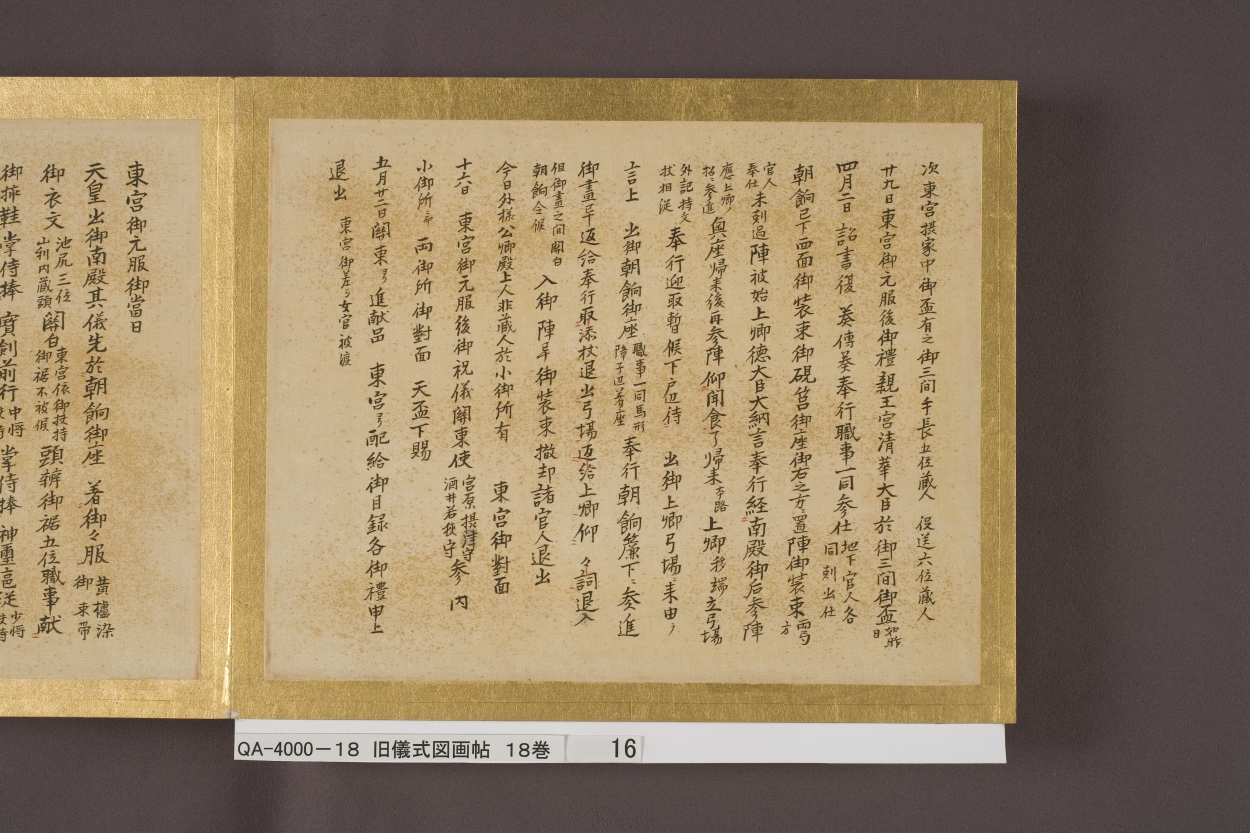 次東宮摂家中御盃有之御三間手長五位蔵人 役送六位蔵人
廿九日東宮御元服後御禮親王宮清華大臣於御三間御盃如昨日
四月二日 詔書復奏傳奏奉行職事一同参仕地下官人各同刻出仕
朝餉已下四面御装束御硯筥御座御右之方置陣御装束両弓方
官人奉仕未刻過陣被始上卿徳大臣大納言奉行経南殿御后参陣
應上卿ノ招参進奥座帰来後再参陣仰聞食了帰来本路上卿移端立弓場
外記持文杖相従奉行迎取暫候下戸辺待 出御上卿弓場ニ来由ヲ
言上 出御朝餉御座職事一同馬形障子辺着座奉行朝餉簾下ニ参進
御畫早返給奉行取添杖退出弓場返給上卿仰 々詞退入
但御畫之間関白朝餉令候 入御 陣早御装束撤却諸官人退出
今日外様公卿殿上人非蔵人於小御所有 東宮御對面
十六日 東宮御元服後御祝儀関東使宮原摂津守酒井若狭守参内
小御所ニ而 両御所御對面 天盃下賜
五月廿二日関東ヨリ進献品 東宮ヨリ配給御目録各御禮申上
退出 東宮御差ヨリ女官被渡
東宮御元服御當日
天皇出御南殿其儀先於朝餉御座 着御々服黄櫨染御束帯
御衣文池尻三位山科内蔵頭関白東宮依御扶持御裾不被候頭辨御裾五位職事献
御挿鞋掌侍捧 寶剣前行中将扶持掌侍捧 神璽扈従少将扶持
QA-4000-18 旧儀式図画帖 18巻 16